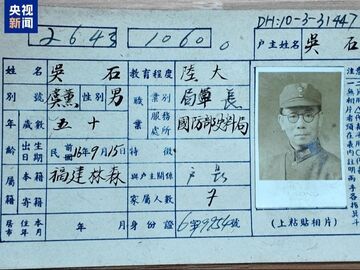 央视新闻
DH:10-3-31447
2643 10600 户主姓名 吴石
姓名 吳石 教育程度 陸大
別號 虞薰 性別 男 職業 職別 局單長
年齡 歲數 五十 服務處所 國防部史料局
出生日期 民前16年9月15日 特徵
籍屬 本籍 福建林森 與戶主關係 戶長
寄籍 家屬人數 7
居住本市 年 月 身份證 6第9254號
(上粘貼相片)